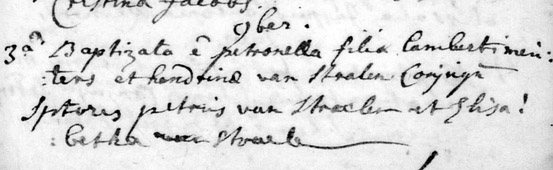 Cristina Jacobs.
9ber
3a Baptizata ē petronella filia lamberti meu:
:lens et hendrinæ van stralen Conjugū
Sptores petrus van Straelen et Elisa!
:betha van Straele